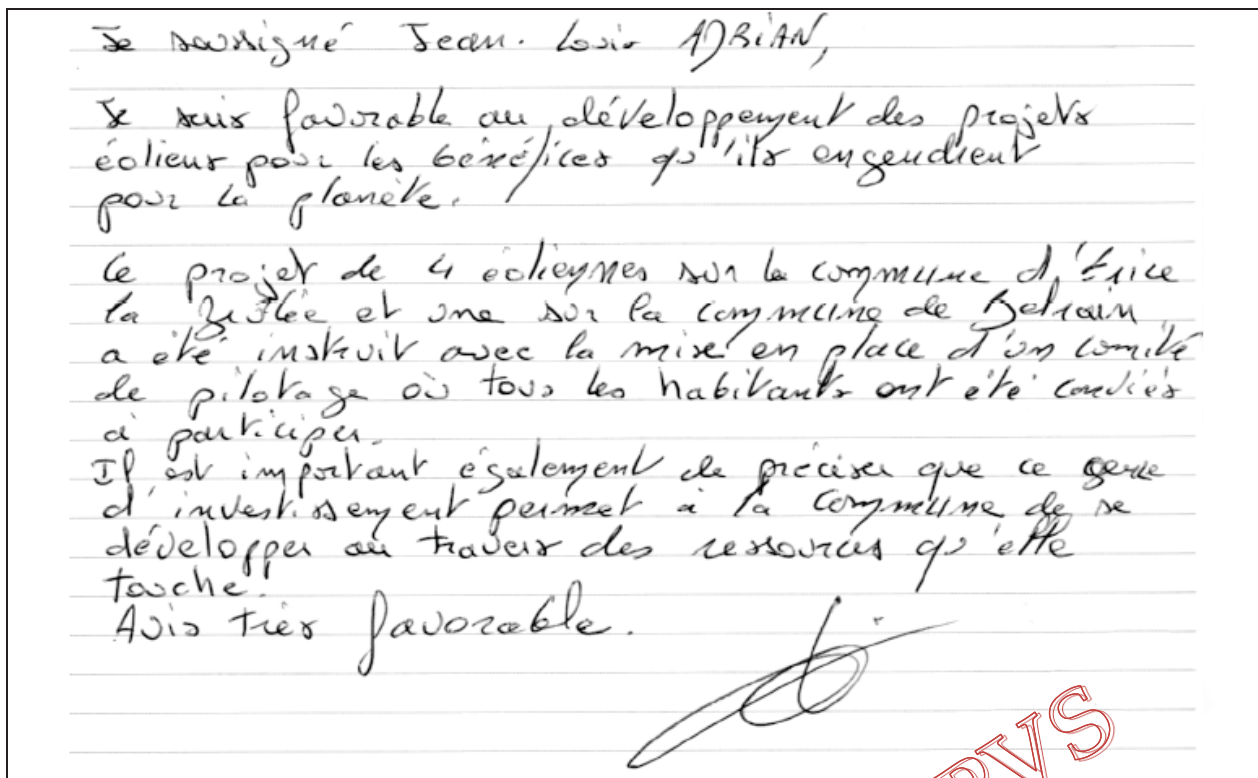 Je soussigné Jean. Louis ADRIAN,
Je suis favorable au développement des projets
éoliens pour les bénéfices qu'ils engendrent
pour la planète.
Ce projet de 4 éoliennes sur la commune d'Erize
la Brûlée et une sur la commune de Belrain
a été instruit avec la mise en place d'un comité
de pilotage où tous les habitants ont été conviés
à participer.
Il est important également de préciser que ce genre
d'investissement permet à la commune de se
développer au travers des ressources qu'elle
touche.
Avis très favorable.